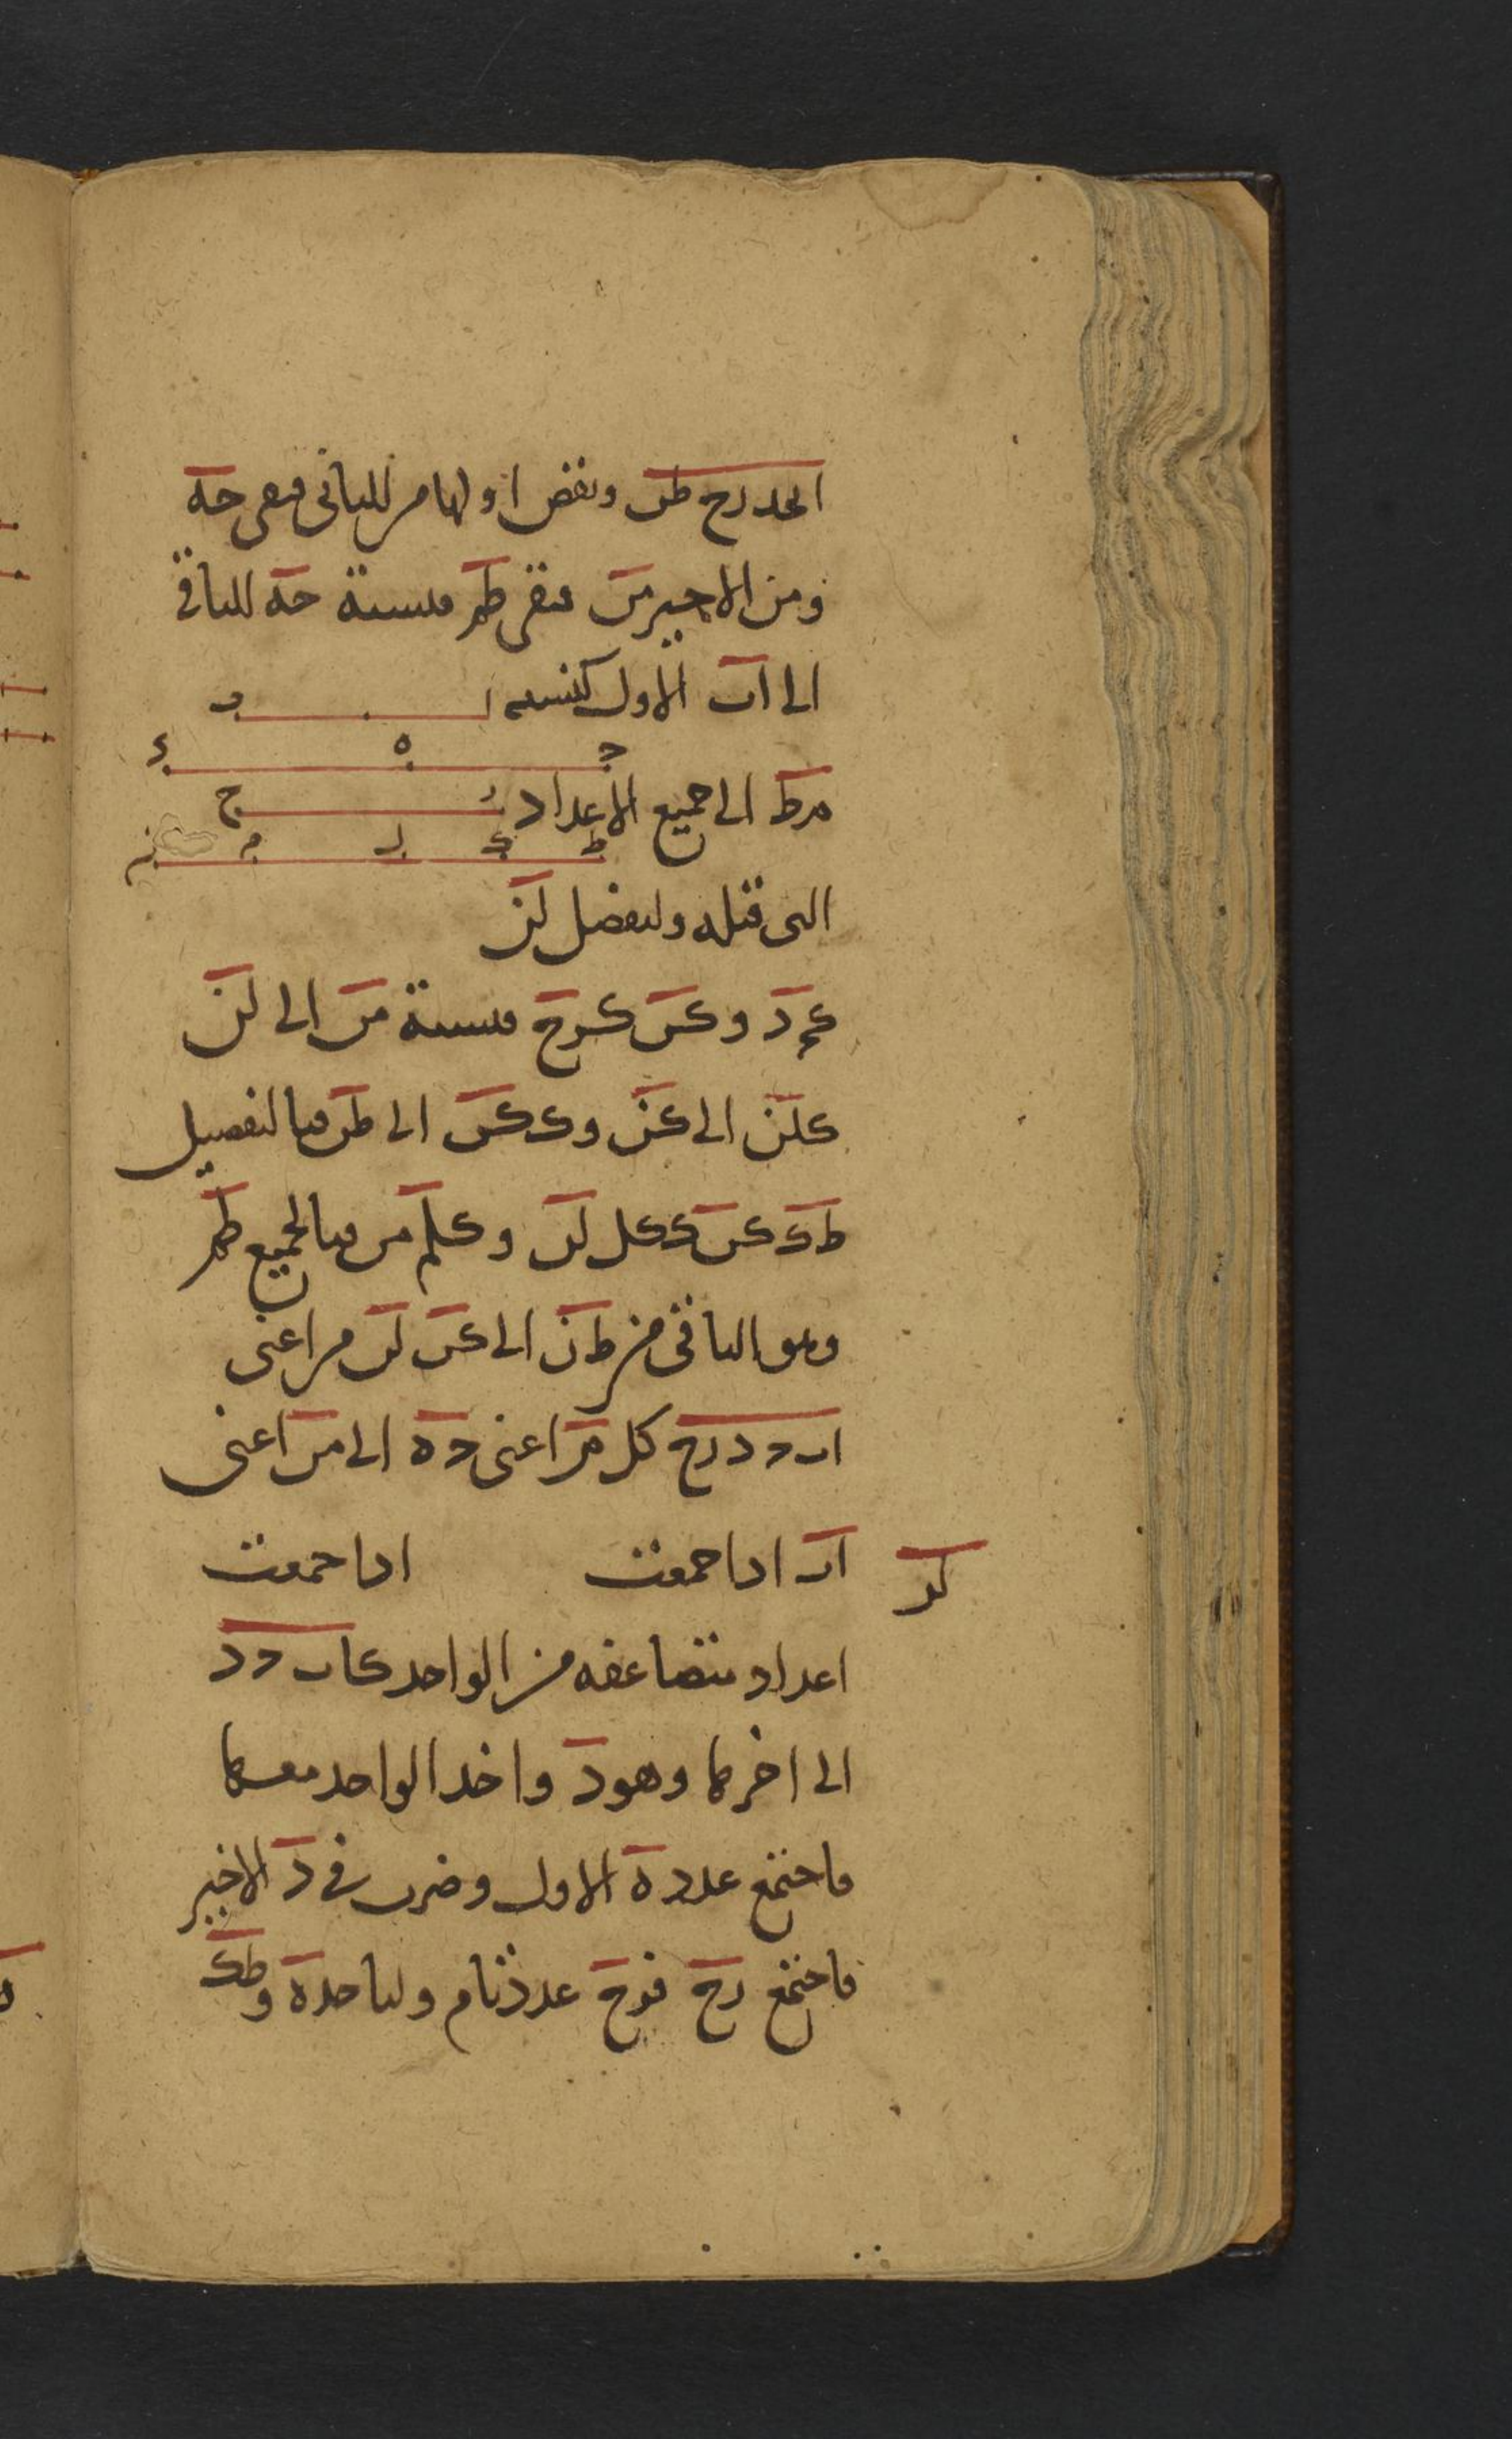 ابحد رح طں ونقص اولها من الثانى فبقى حه
ومن الاخير من فبقى طم فنسبة حه الباقى
الى اب الاول كنسبه
ا ب
ح ه د
مرط الى جميع الاعداد
ر ح
ط ك ل م ن
التى قبله وليفصل لن
كحد وكن كرح فنسبة من الى لن
كلن الى كن وككن الى طن فبالتفصيل
طك كن ككل لن وكلم من فبالجميع طم
وهو الباقى من طن الى كن لن من اعنى
اب حد رح كل من اعنى حه الى من اعنى
اب اذا جمعت اذا جمعت
لد
اعداد متضاعفه من الواحد كاب حد
الى اخرها وهود واخذ الواحد معها
فاجتمع عدد ه الاول وضرب فى د الاخير
فاجتمع رح فرح عدد تام ولناخذ ه وطك